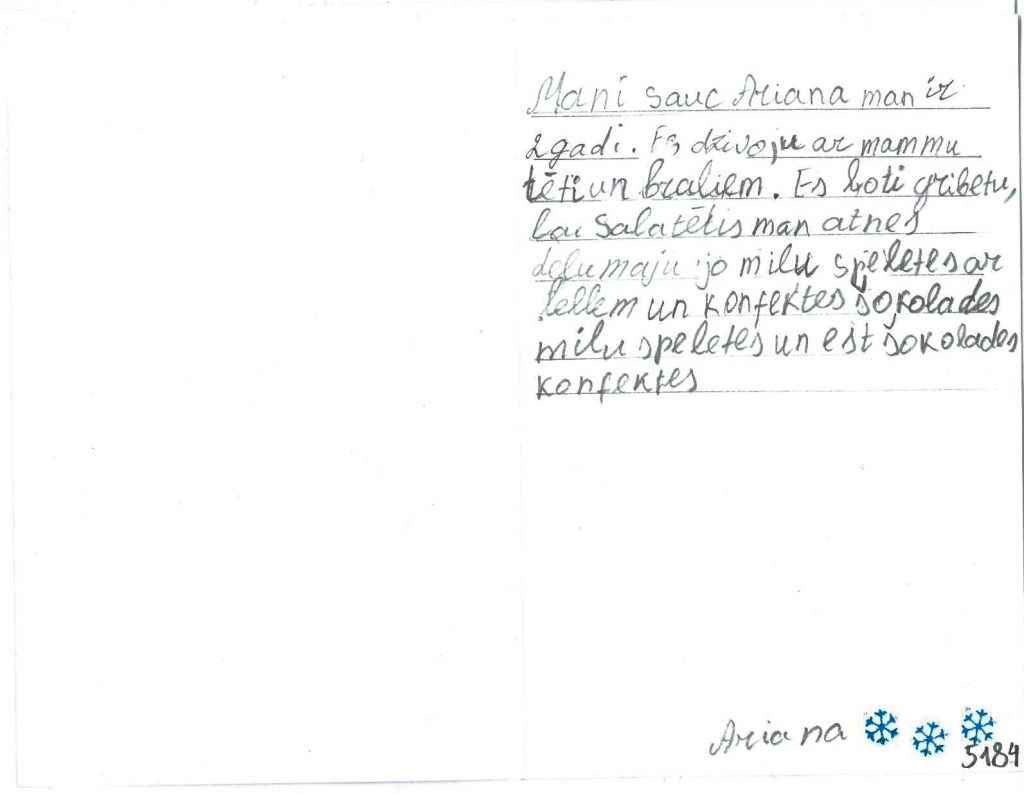 Mani sauc Ariana man ir
2gadi. Es dzivoju ar mammu
tēti un braliem. Es loti gribetu,
lai Salatētis man atnes
lelu maju jo milu speletes ar
lellem un konfektes šokolades
milu speletes un est šokolades
konfektes
Ariana
5184